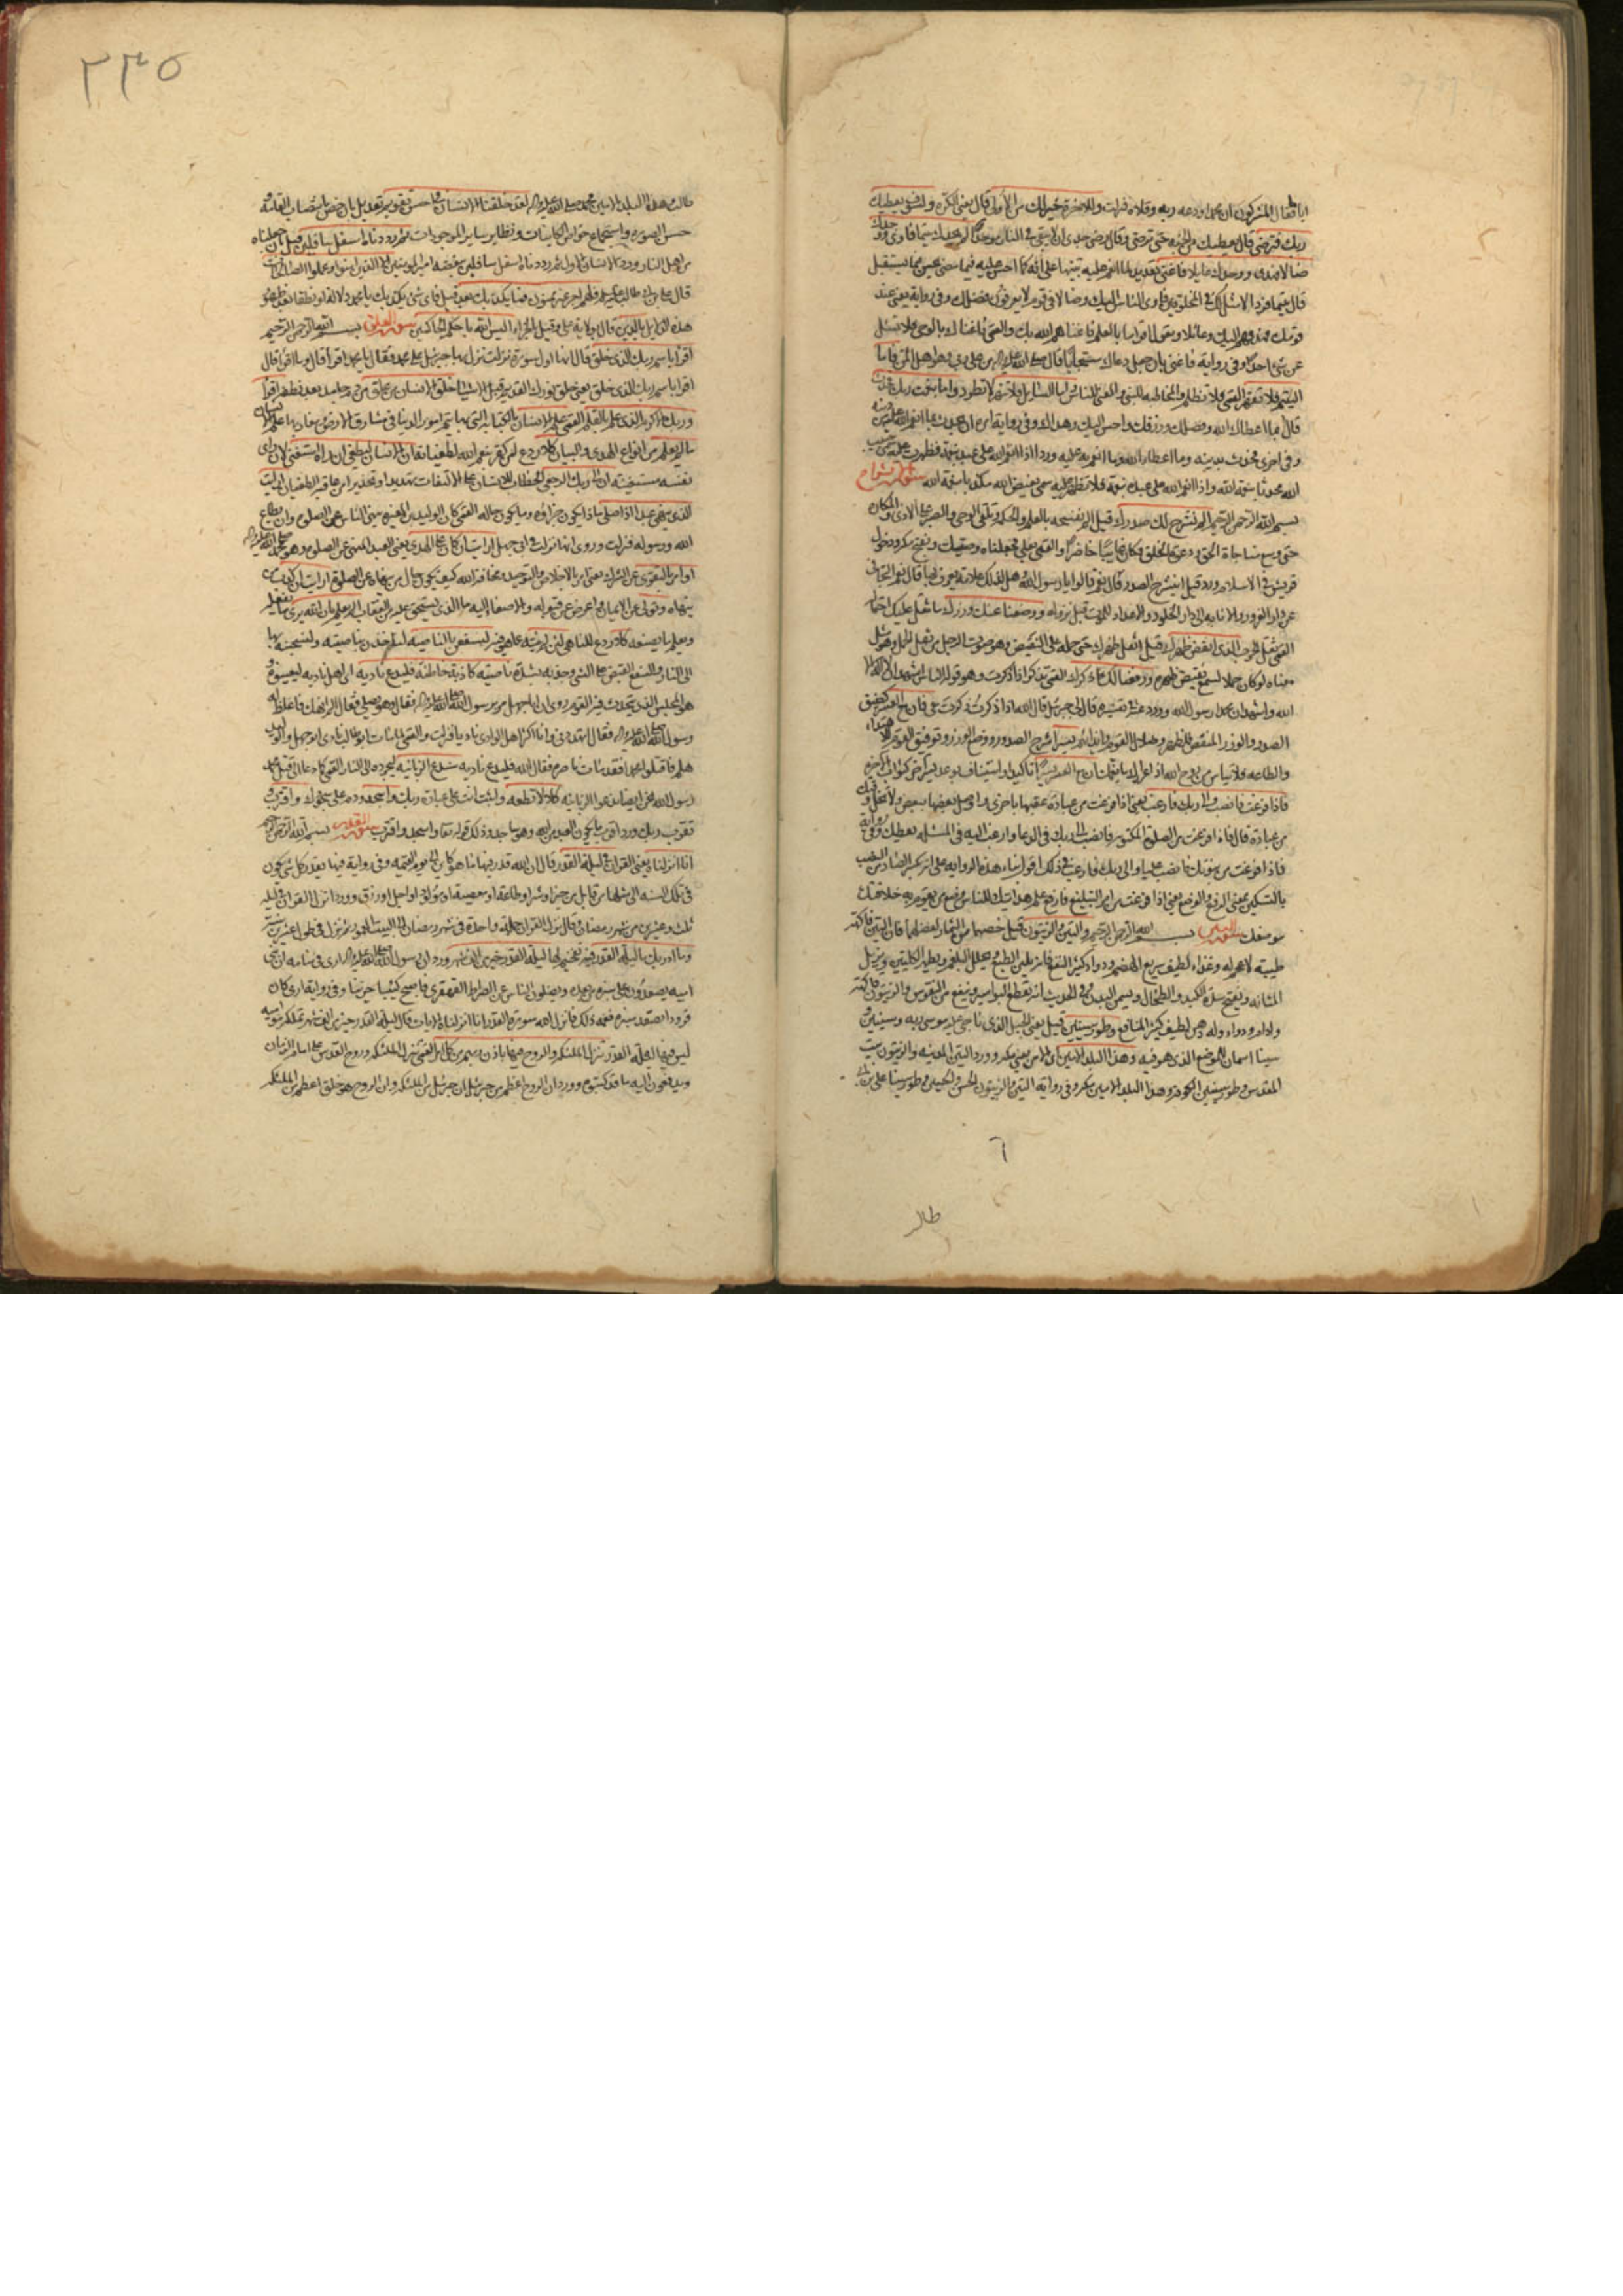 اياما فقال المشركون ان محمدا ودعه ربه وقلاه فنزلت وللاخرة خير لك من الاولى قال يعنى الكرة ولسوف يعطيك
ربك فترضى قال يعطيك من الجنة حتى ترضى وقال رضى جدى ان لا يبقى فى النار موحد الم يجدك يتيما فاوى ووجدك
ضالا فهدى ووجدك عايلا فاغنى تعديد لما انعم عليه تنبيها على انه كما احسن اليه فيما مضى يحسن فيما يستقبل
قال يتيما فردا لا مثل لك فى المخلوقين فاوى الناس اليك وضالا فى قوم لا يعرفون فضلك وفى رواية يعنى عند
قومك فهداهم اليك وعائلا تعول اقواما بالعلم فاغناهم الله بك والقمى فاغناك بالوحى فلا تسئل
عن شئ احدا وفى رواية فاغنى بان جعل دعاك مستجابا
اليتيم فلا تقهر القمى فلا تظلم والمخاطبة للنبى والمعنى للناس واما السائل فلا تنهر لا تطرد واما بنعمة ربك فحدث
قال بما اعطاك الله وفضلك ورزقك واحسن اليك وهداك وفى رواية امره ان يحدث بما انعم الله عليه من دينه
وفى اخرى فحدث بدينه وما اعطاه الله وما انعم به عليه وورد اذا انعم الله على عبده بنعمة فظهرت عليه سمى حبيب
الله محدثا بنعمة الله واذا انعم الله على عبده نعمة فلم تظهر عليه سمى بغيض الله مكذبا بنعمة الله سورة الم نشرح
بسم الله الرحمن الرحيم الم نشرح لك صدرك قيل الم نفسحه بالعلم والحكمة وتلقى الوحى والصبر على الاذى والمكاره
حتى وسع مناجاة الحق ودعوة الخلق فكان غايبا حاضرا والقمى بعلى فجعلناه وصيك وبفتح مكة ودخول
قريش فى الاسلام وورد قيل اينشرح الصدر قال نعم قالوا يا رسول الله وهل لذلك علامة يعرف بها قال نعم التجافى
عن دار الغرور والانابة الى دار الخلود والاعداد للموت قبل نزوله ووضعنا عنك وزرك ما ثقل عليك احتماله
القمى ثقل الحرب الذى انقض ظهرك قيل اثقل ظهرك حتى حمله على النقيض وهو صوت الرحل من ثقل الحمل وهو مثل
معناه لو كان حملا لسمع نقيض ظهره ورفعنا لك ذكرك القمى تذكر اذا ذكرت وهو قول الناس اشهد ان لا اله الا
الله واشهد ان محمدا رسول الله قال لى جبرئيل قال الله اذا ذكرت ذكرت معى فان مع العسر كضيق
الصدر والوزر المنقض للظهر وضلال القوم وايذائهم يسرا كشرح الصدر ووضع الوزر وتوفيق القوم للاهتداء
والطاعة فلا تياس من روح الله اذا عراك ما يغمك ان مع العسر يسرا تاكيد او استيناف
فاذا فرغت فانصب والى ربك فارغب يعنى اذا فرغت من عبادة عقبها باخرى واوصل بعضها ببعض ولا تخل وقتك
من عبادة قال فاذا فرغت من الصلوة المكتوبة فانصب الى ربك فى الدعا وارغب اليه فى المسئلة يعطك وفى رواية
فاذا فرغت من نبوتك فانصب عليا والى ربك فارغب فى ذلك
بالتسكين بمعنى الرفع والوضع يعنى اذا فرغت من امر التبليغ
موضعك سورة التين بسم الله الرحمن الرحيم والتين والزيتون قيل خصهما من الثمار لفضلهما فان التين فاكهة
طيبة لا عجم له وغذاء لطيف سريع الهضم ودواء كثير النفع فانه يلين الطبع ويحلل البلغم ويطهر الكليتين ويزيل
المثانة ويفتح سدة الكبد والطحال ويسمن البدن وفى الحديث انه يقطع البواسير وينفع من النقرس والزيتون فاكهة
وادام ودواء وله دهن لطيف كثير المنافع وطور سينين قيل يعنى الجبل الذى ناجى عليه موسى ربه وسينين و
سينا اسمان للموضع الذى هو فيه وهذا البلد الامين اى الامن يعنى مكة وورد التين المدينة والزيتون بيت
المقدس وطور سينين الكوفة وهذا البلد الامين مكة وفى رواية التين والزيتون الحسن والحسين وطور سينا على بن ابى
طالب
٢٣٥
طالب وهذا البلد الامين محمد صلى الله عليه واله لقد خلقنا الانسان فى احسن تقويم تعديل بان خص بانتصاب القامة و
حسن الصورة واستجماع خواص الكاينات ونظاير ساير الموجودات ثم رددناه اسفل سافلين قيل بان جعلناه
من اهل النار وورد الانسان الاول ثم رددناه اسفل سافلين ببغضه امير المؤمنين الا الذين امنوا وعملوا الصالحات
قال على بن ابى طالب فلهم اجر غير ممنون فما يكذبك بعد قيل فاى شئ يكذبك يا محمد دلالة او نطقا بعد ظهور
هذه الدلايل بالدين قال بولاية على وقيل بالجزاء اليس الله باحكم الحاكمين سورة العلق بسم الله الرحمن الرحيم
اقرا باسم ربك الذى خلق قال انها اول سورة نزلت نزل بها جبرئيل على محمد فقال يا محمد اقرا قال وما اقرا قال
اقرا باسم ربك الذى خلق يعنى خلق نورك القديم قبل الاشياء خلق الانسان من علق من دم جامد بعد نطفة اقرا
وربك الاكرم الذى علم بالقلم القمى علم الانسان بالكتابة التى بها تتم امور الدنيا فى مشارق الارض ومغاربها علم الانسان
ما لم يعلم من انواع الهدى والبيان كلا ردع لمن كفر بنعم الله لطغيانه ان الانسان ليطغى ان راه استغنى لان راى
نفسه مستغنية ان الى ربك الرجعى الخطاب للانسان على الالتفات تهديدا وتحذيرا من عاقبة الطغيان ارايت
الذى ينهى عبدا اذا صلى ماذا يكون جزاؤه وما يكون حاله القمى كان الوليد بن المغيرة ينهى الناس عن الصلوة وان يطاع
الله ورسوله فنزلت وروى انها نزلت فى ابى جهل ارايت ان كان على الهدى يعنى العبد المنهى عن الصلوة وهو محمد صلى الله عليه واله
او امر بالتقوى عن الشرك يعنى امر بالاخلاص والتوحيد ومخافة الله كيف يكون حال من ينهاه عن الصلوة ارايت ان كذب من
ينهاه وتولى عن الايمان واعرض عن قبوله والاصغاء اليه ما الذى يستحق عليه من العقاب الم يعلم بان الله يرى ما يفعله
ويعلم ما يصنعه كلا ردع للناهى لئن لم ينته عما هو فيه لنسفعن بالناصية لناخذن بناصيته ولنسحبنه بها
الى النار والسفع القبض على الشئ وجذبه بشدة ناصية كاذبة خاطئة فليدع ناديه اى اهل ناديه ليعينوه و
هو المجلس الذى يتحدث فيه القوم روى ان ابا جهل مر برسول الله صلى الله عليه واله وهو يصلى فقال الم انهك فاغلظ له
رسول الله صلى الله عليه واله فقال اتهددنى وانا اكثر اهل الوادى ناديا فنزلت والقمى لما مات ابو طالب نادى ابو جهل والوليد
هلم فاقتلوا محمدا فقد مات ناصره فقال الله فليدع ناديه سندع الزبانية ليجروه الى النار القمى كما دعا الى قتل محمد
رسول الله نحن ايضا ندعو الزبانية كلا لا تطعه واثبت انت على عبادة ربك واسجد ودم على سجودك واقترب و
تقرب وربك ورد اقرب ما يكون العبد من ربه وهو ساجد وذلك قوله تعالى واسجد واقترب سورة القدر بسم الله الرحمن الرحيم
انا انزلناه يعنى القران فى ليلة القدر قال ان الله قدر فيها ما هو كاين الى يوم القيمة وفى رواية فيها يقدر كل شئ يكون
فى تلك السنة الى مثلها من قابل من خير او شر او طاعة او معصية او مولود او اجل او رزق وورد انزل القران فى ليلة
ثلث وعشرين من شهر رمضان وقال نزل القران جملة واحدة فى شهر رمضان الى البيت المعمور ثم نزل فى طول عشرين سنة
وما ادريك ما ليلة القدر فيه تفخيم لها ليلة القدر خير من الف شهر ورد ان رسول الله صلى الله عليه واله ارى فى منامه ان بنى
امية يصعدون على منبره من بعده ويضلون الناس عن الصراط القهقرى فاصبح كئيبا حزينا وفى رواية ارى كان
قرودا تصعد منبره فغمه ذلك فانزل الله سورة القدر انا انزلناه الايات قال ليلة القدر خير من الف شهر تملكه بنو امية
ليس فيها ليلة القدر تنزل الملئكة والروح فيها باذن ربهم من كل امر القمى تنزل الملئكة وروح القدس على امام الزمان
ويدفعون اليه ما قد كتبوه وورد ان الروح اعظم من جبرئيل ان جبرئيل من الملئكة وان الروح هو خلق اعظم من الملئكة